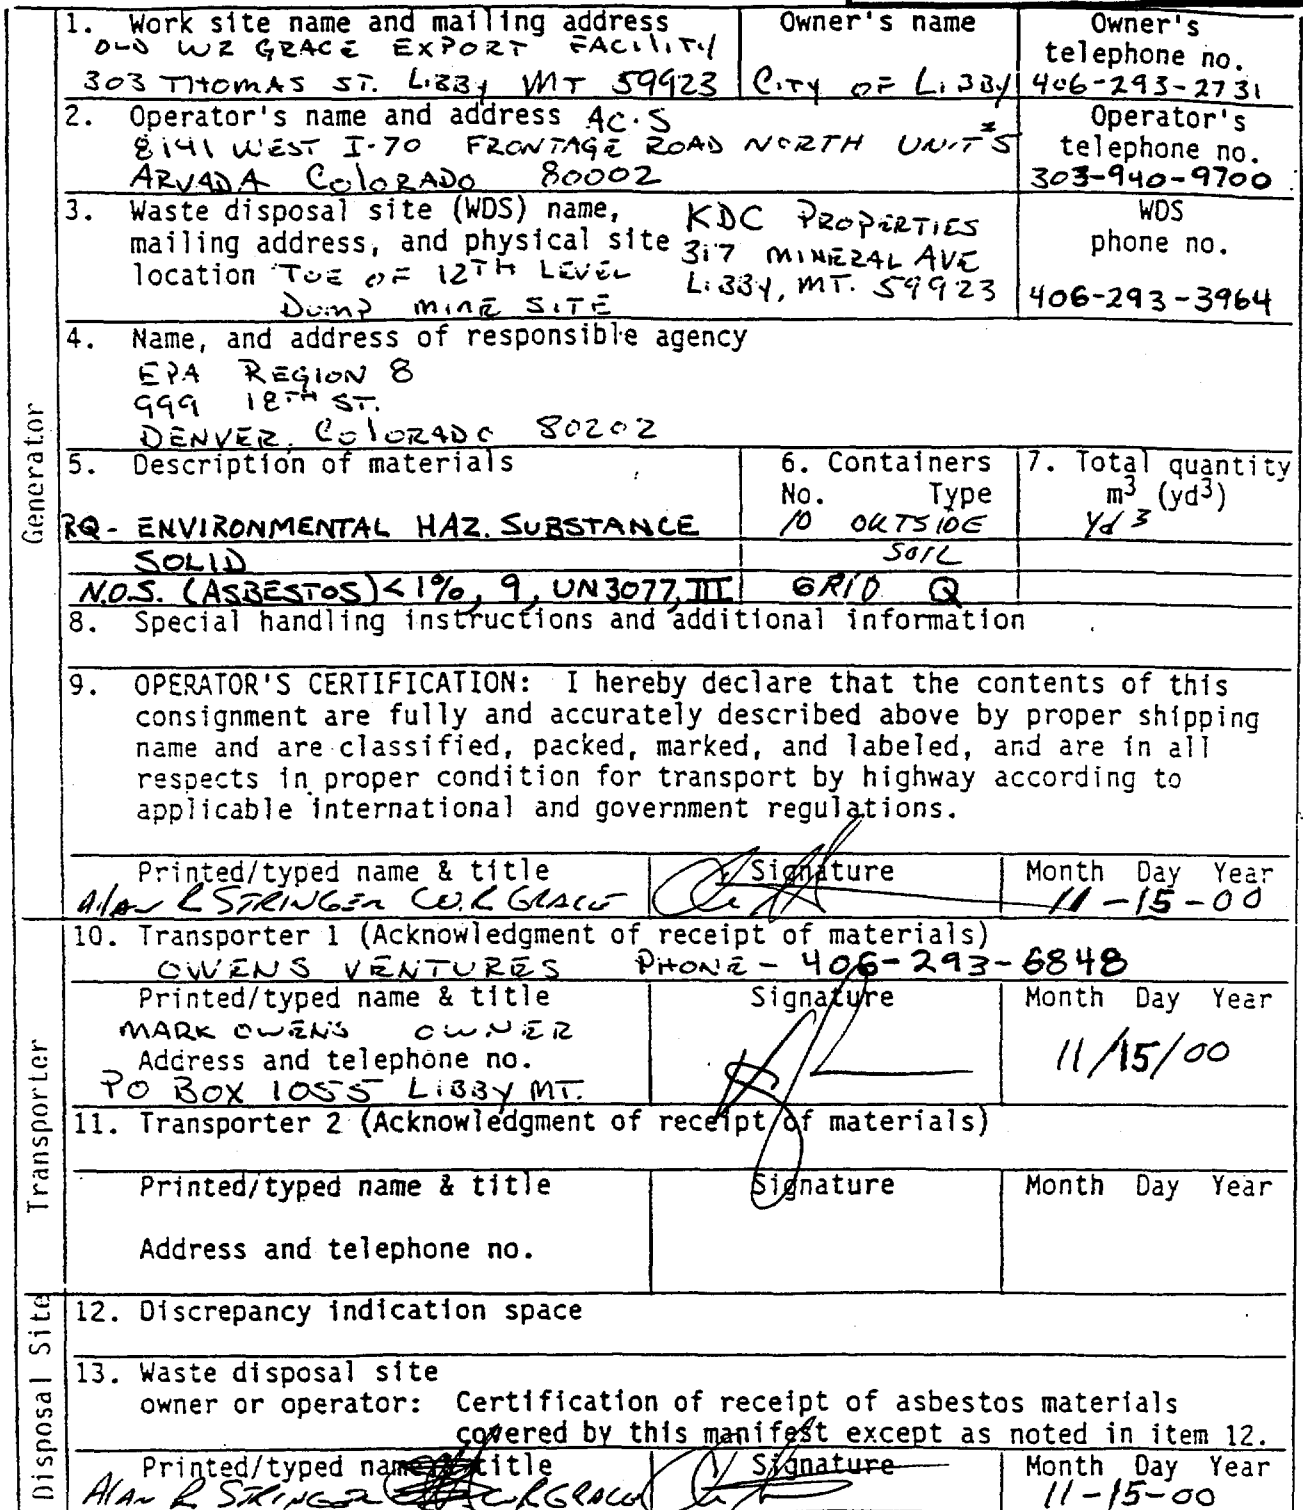 1. Work site name and mailing address
OLD WR GRACE EXPORT FACILITY
303 THOMAS ST. LIBBY MT 59923
Owner's name
CITY OF LIBBY
Owner's
telephone no.
406-293-2731
2. Operator's name and address AC·S
8141 WEST I-70 FRONTAGE ROAD NORTH UNIT #5
ARVADA COLORADO 80002
Operator's
telephone no.
303-940-9700
3. Waste disposal site (WDS) name,
mailing address, and physical site
location TOE OF 12TH LEVEL
DUMP MINE SITE
KDC PROPERTIES
317 MINERAL AVE
LIBBY, MT. 59923
WDS
phone no.
406-293-3964
4. Name, and address of responsible agency
EPA REGION 8
999 18TH ST.
DENVER, COLORADO 80202
Generator
5. Description of materials
RQ- ENVIRONMENTAL HAZ. SUBSTANCE
SOLID
N.O.S. (ASBESTOS) <1%, 9, UN3077, III
6. Containers
No. Type
10 OUTSIDE
SOIL
GRID Q
7. Total quantity
m3 (yd3)
Yd 3
8. Special handling instructions and additional information
9. OPERATOR'S CERTIFICATION: I hereby declare that the contents of this
consignment are fully and accurately described above by proper shipping
name and are classified, packed, marked, and labeled, and are in all
respects in proper condition for transport by highway according to
applicable international and government regulations.
Printed/typed name & title
Alan R STRINGER W.R GRACE
Signature
Month Day Year
11-15-00
Transporter
10. Transporter 1 (Acknowledgment of receipt of materials)
OWENS VENTURES PHONE - 406-293-6848
Printed/typed name & title
MARK OWENS OWNER
Address and telephone no.
PO BOX 1055 LIBBY MT.
Signature
Month Day Year
11/15/00
11. Transporter 2 (Acknowledgment of receipt of materials)
Printed/typed name & title
Signature
Month Day Year
Address and telephone no.
Disposal Site
12. Discrepancy indication space
13. Waste disposal site
owner or operator: Certification of receipt of asbestos materials
covered by this manifest except as noted in item 12.
Printed/typed name & title
Alan R STRINGER W.R GRACE
Signature
Month Day Year
11-15-00